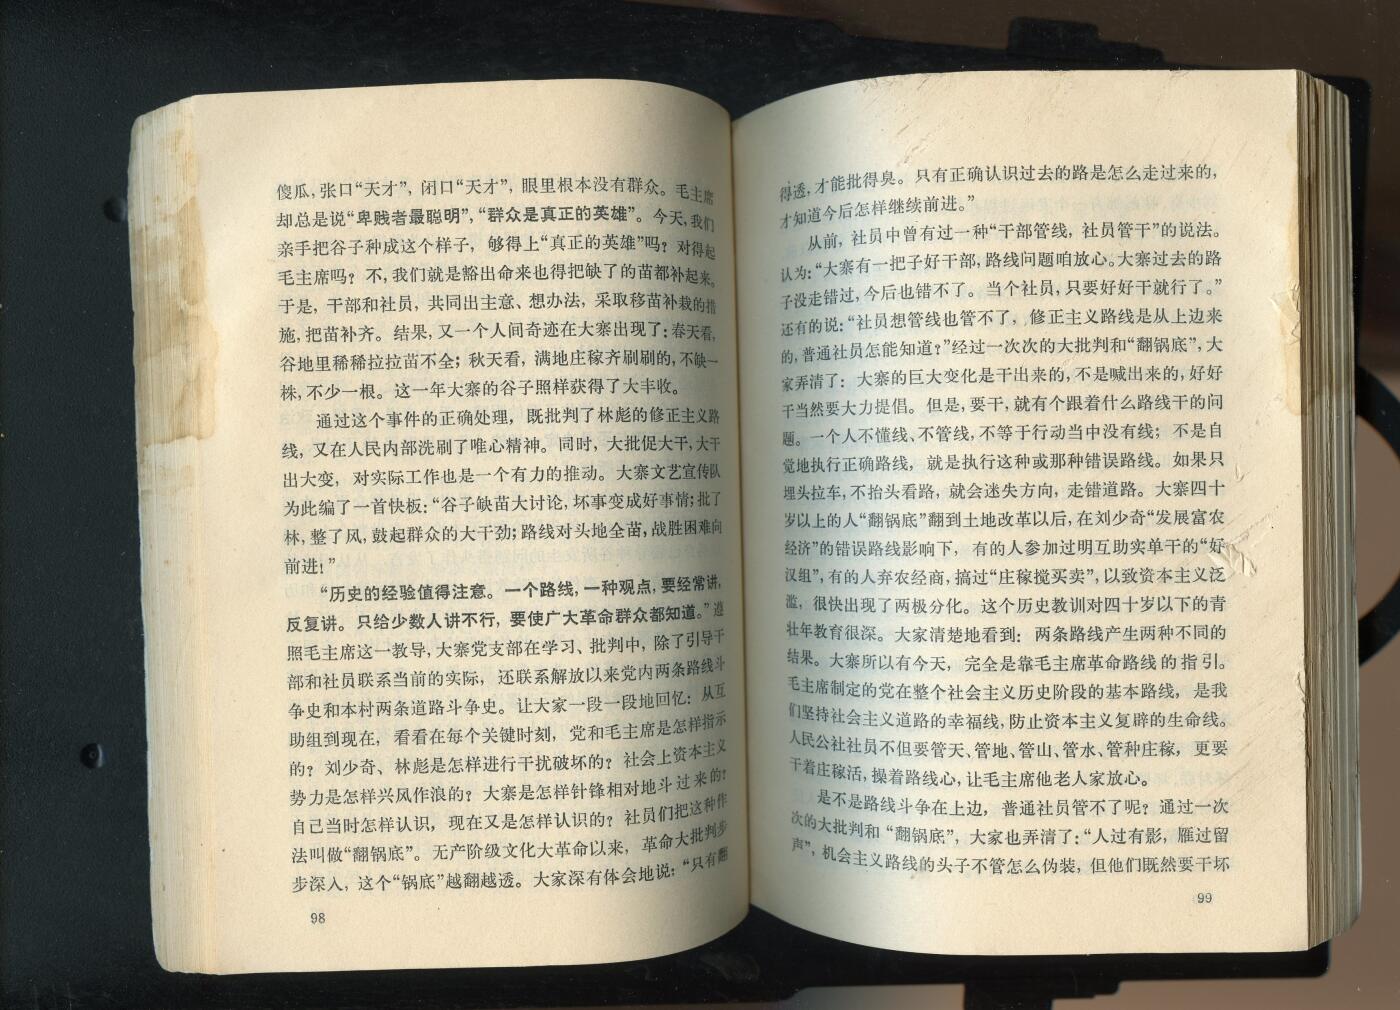 傻瓜，张口“天才”，闭口“天才”，眼里根本没有群众。毛主席
却总是说“卑贱者最聪明”，“群众是真正的英雄”。今天，我们
亲手把谷子种成这个样子，够得上“真正的英雄”吗？对得起
毛主席吗？不，我们就是豁出命来也得把缺了的苗都补起来。
于是，干部和社员，共同出主意、想办法，采取移苗补栽的措
施，把苗补齐。结果，又一个人间奇迹在大寨出现了：春天看，
谷地里稀稀拉拉苗不全；秋天看，满地庄稼齐刷刷的，不缺一
株，不少一根。这一年大寨的谷子照样获得了大丰收。
通过这个事件的正确处理，既批判了林彪的修正主义路
线，又在人民内部洗刷了唯心精神。同时，大批促大干，大干
出大变，对实际工作也是一个有力的推动。大寨文艺宣传队
为此编了一首快板：“谷子缺苗大讨论，坏事变成好事情；批了
林，整了风，鼓起群众的大干劲；路线对头地全苗，战胜困难向
前进！”
“历史的经验值得注意。一个路线，一种观点，要经常讲，
反复讲。只给少数人讲不行，要使广大革命群众都知道。”遵
照毛主席这一教导，大寨党支部在学习、批判中，除了引导干
部和社员联系当前的实际，还联系解放以来党内两条路线斗
争史和本村两条道路斗争史。让大家一段一段地回忆：从互
助组到现在，看看在每个关键时刻，党和毛主席是怎样指示
的？刘少奇、林彪是怎样进行干扰破坏的？社会上资本主义
势力是怎样兴风作浪的？大寨是怎样针锋相对地斗过来的？
自己当时怎样认识，现在又是怎样认识的？社员们把这种作
法叫做“翻锅底”。无产阶级文化大革命以来，革命大批判步
步深入，这个“锅底”越翻越透。大家深有体会地说：“只有翻
98
得透，才能批得臭。只有正确认识过去的路是怎么走过来的，
才知道今后怎样继续前进。”
从前，社员中曾有过一种“干部管线，社员管干”的说法。
认为：“大寨有一把子好干部，路线问题咱放心。大寨过去的路
子没走错过，今后也错不了。当个社员，只要好好干就行了。”
还有的说：“社员想管线也管不了，修正主义路线是从上边来
的，普通社员怎能知道？”经过一次次的大批判和“翻锅底”，大
家弄清了：大寨的巨大变化是干出来的，不是喊出来的，好好
干当然要大力提倡。但是，要干，就有个跟着什么路线干的问
题。一个人不懂线、不管线，不等于行动当中没有线；不是自
觉地执行正确路线，就是执行这种或那种错误路线。如果只
埋头拉车，不抬头看路，就会迷失方向，走错道路。大寨四十
岁以上的人“翻锅底”翻到土地改革以后，在刘少奇“发展富农
经济”的错误路线影响下，有的人参加过明互助实单干的“好
汉组”，有的人弃农经商，搞过“庄稼搅买卖”，以致资本主义泛
滥，很快出现了两极分化。这个历史教训对四十岁以下的青
壮年教育很深。大家清楚地看到：两条路线产生两种不同的
结果。大寨所以有今天，完全是靠毛主席革命路线的指引。
毛主席制定的党在整个社会主义历史阶段的基本路线，是我
们坚持社会主义道路的幸福线，防止资本主义复辟的生命线。
人民公社社员不但要管天、管地、管山、管水、管种庄稼，更要
干着庄稼活，操着路线心，让毛主席他老人家放心。
是不是路线斗争在上边，普通社员管不了呢？通过一次
次的大批判和“翻锅底”，大家也弄清了：“人过有影，雁过留
声”，机会主义路线的头子不管怎么伪装，但他们既然要干坏
99